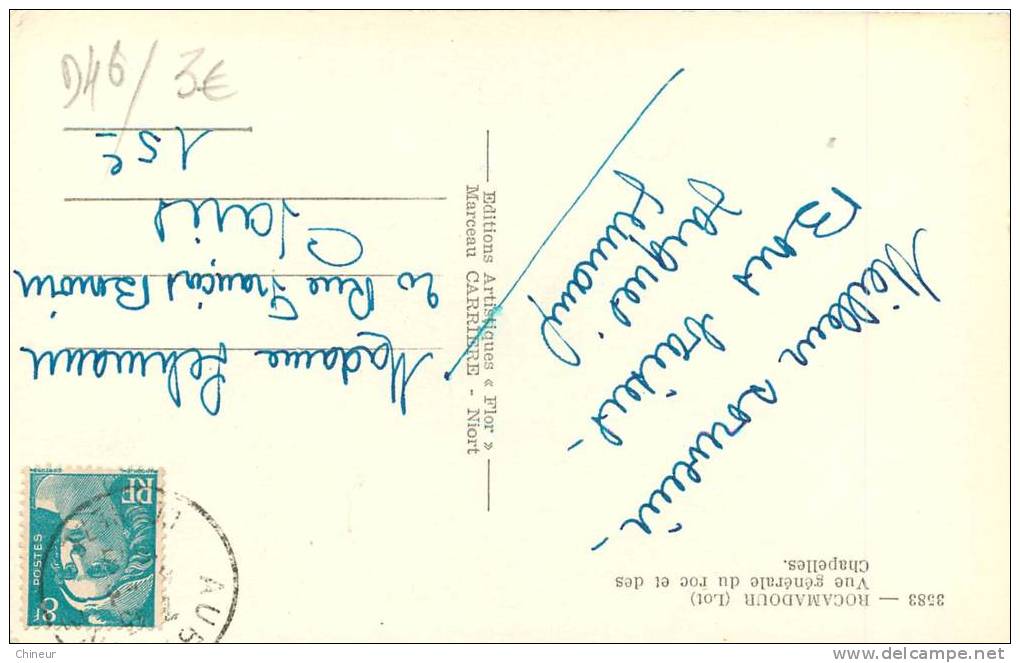 3583 — ROCAMADOUR (Lot)
Vue générale du roc et des
Chapelles.
Meilleur souvenir -
Bons baisers -
Jacques
Editions Artistiques « Flor »
Marceau CARRIÈRE - Niort
Madame Lehmann
20 Rue François Bonvin
Paris
15e
RF
POSTES
8F
AUS
D46 / 3€
Chineur
www.delcampe.net